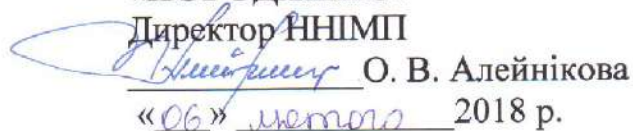 Директор ННІМП
О. В. Алейнікова
«06» лютого 2018 р.